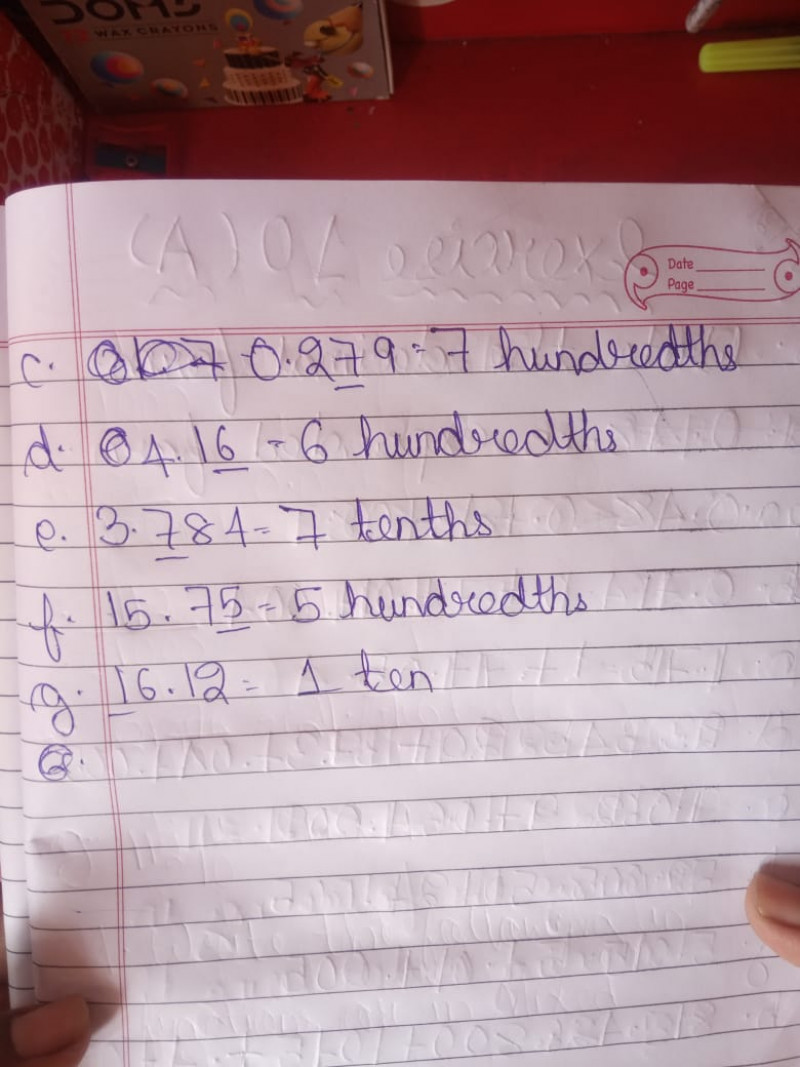 DOMS
12 WAX CRAYONS
Date
Page
c. 0.279 = 7 hundredths
d. 4.16 = 6 hundredths
e. 3.784 = 7 tenths
f. 15.75 = 5 hundredths
g. 16.12 = 1 ten